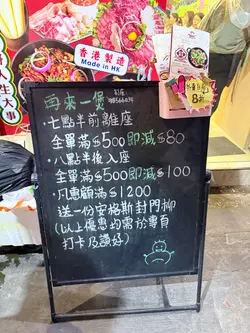 香港製造
Made in HK
再來一煲
·七點半前離座
全單滿$500即減$80
·八點半後入座
全單滿$500即減$100
·凡惠顧滿$1200
送一份安格斯封門柳
(以上優惠均需於專頁
打卡及讚好)
人生大事